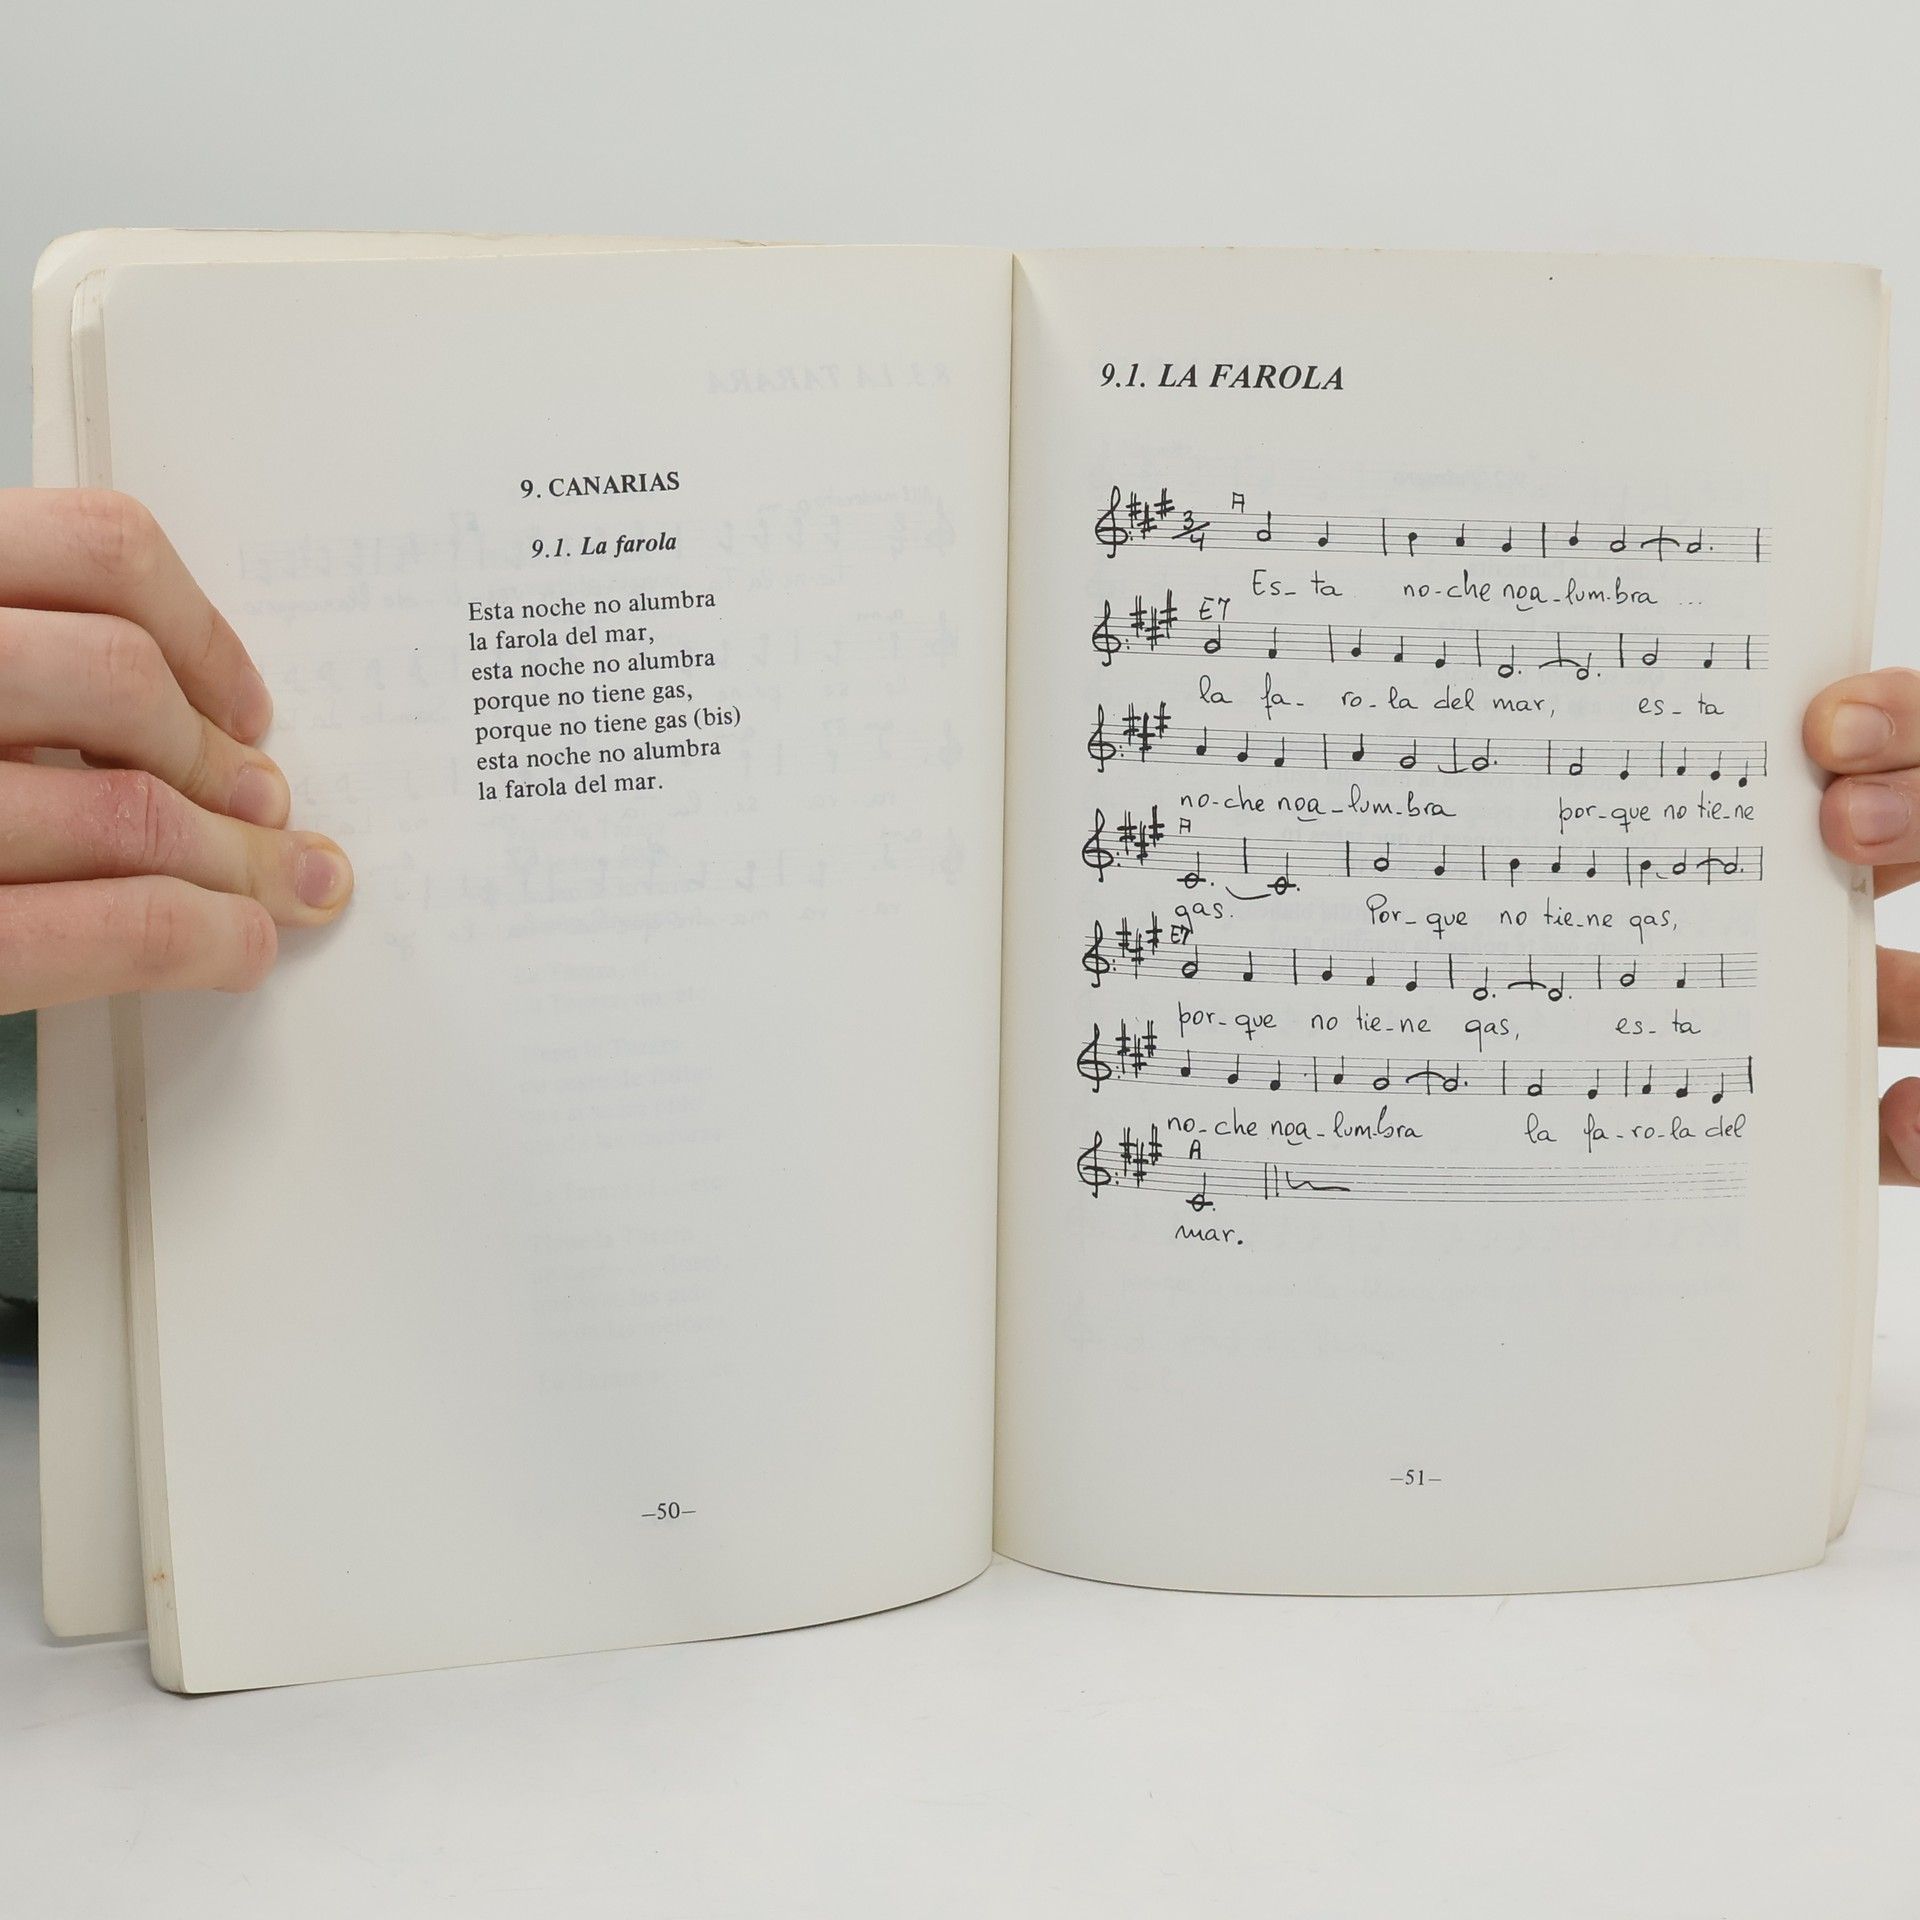 9. CANARIAS
9.1. La farola
Esta noche no alumbra
la farola del mar,
esta noche no alumbra
porque no tiene gas,
porque no tiene gas (bis)
esta noche no alumbra
la farola del mar.
–50–
9.1. LA FAROLA
3/4 A
Es_ ta no-che noa_lum-bra ...
E7
la fa- ro-la del mar, es_ta
no-che noa_lum_bra por_que no tie_ne
A
gas. Por_que no tie_ne gas,
E7
por_que no tie_ne gas, es_ ta
no_che noa_lum-bra la fa-ro-la del
A
mar.
–51–